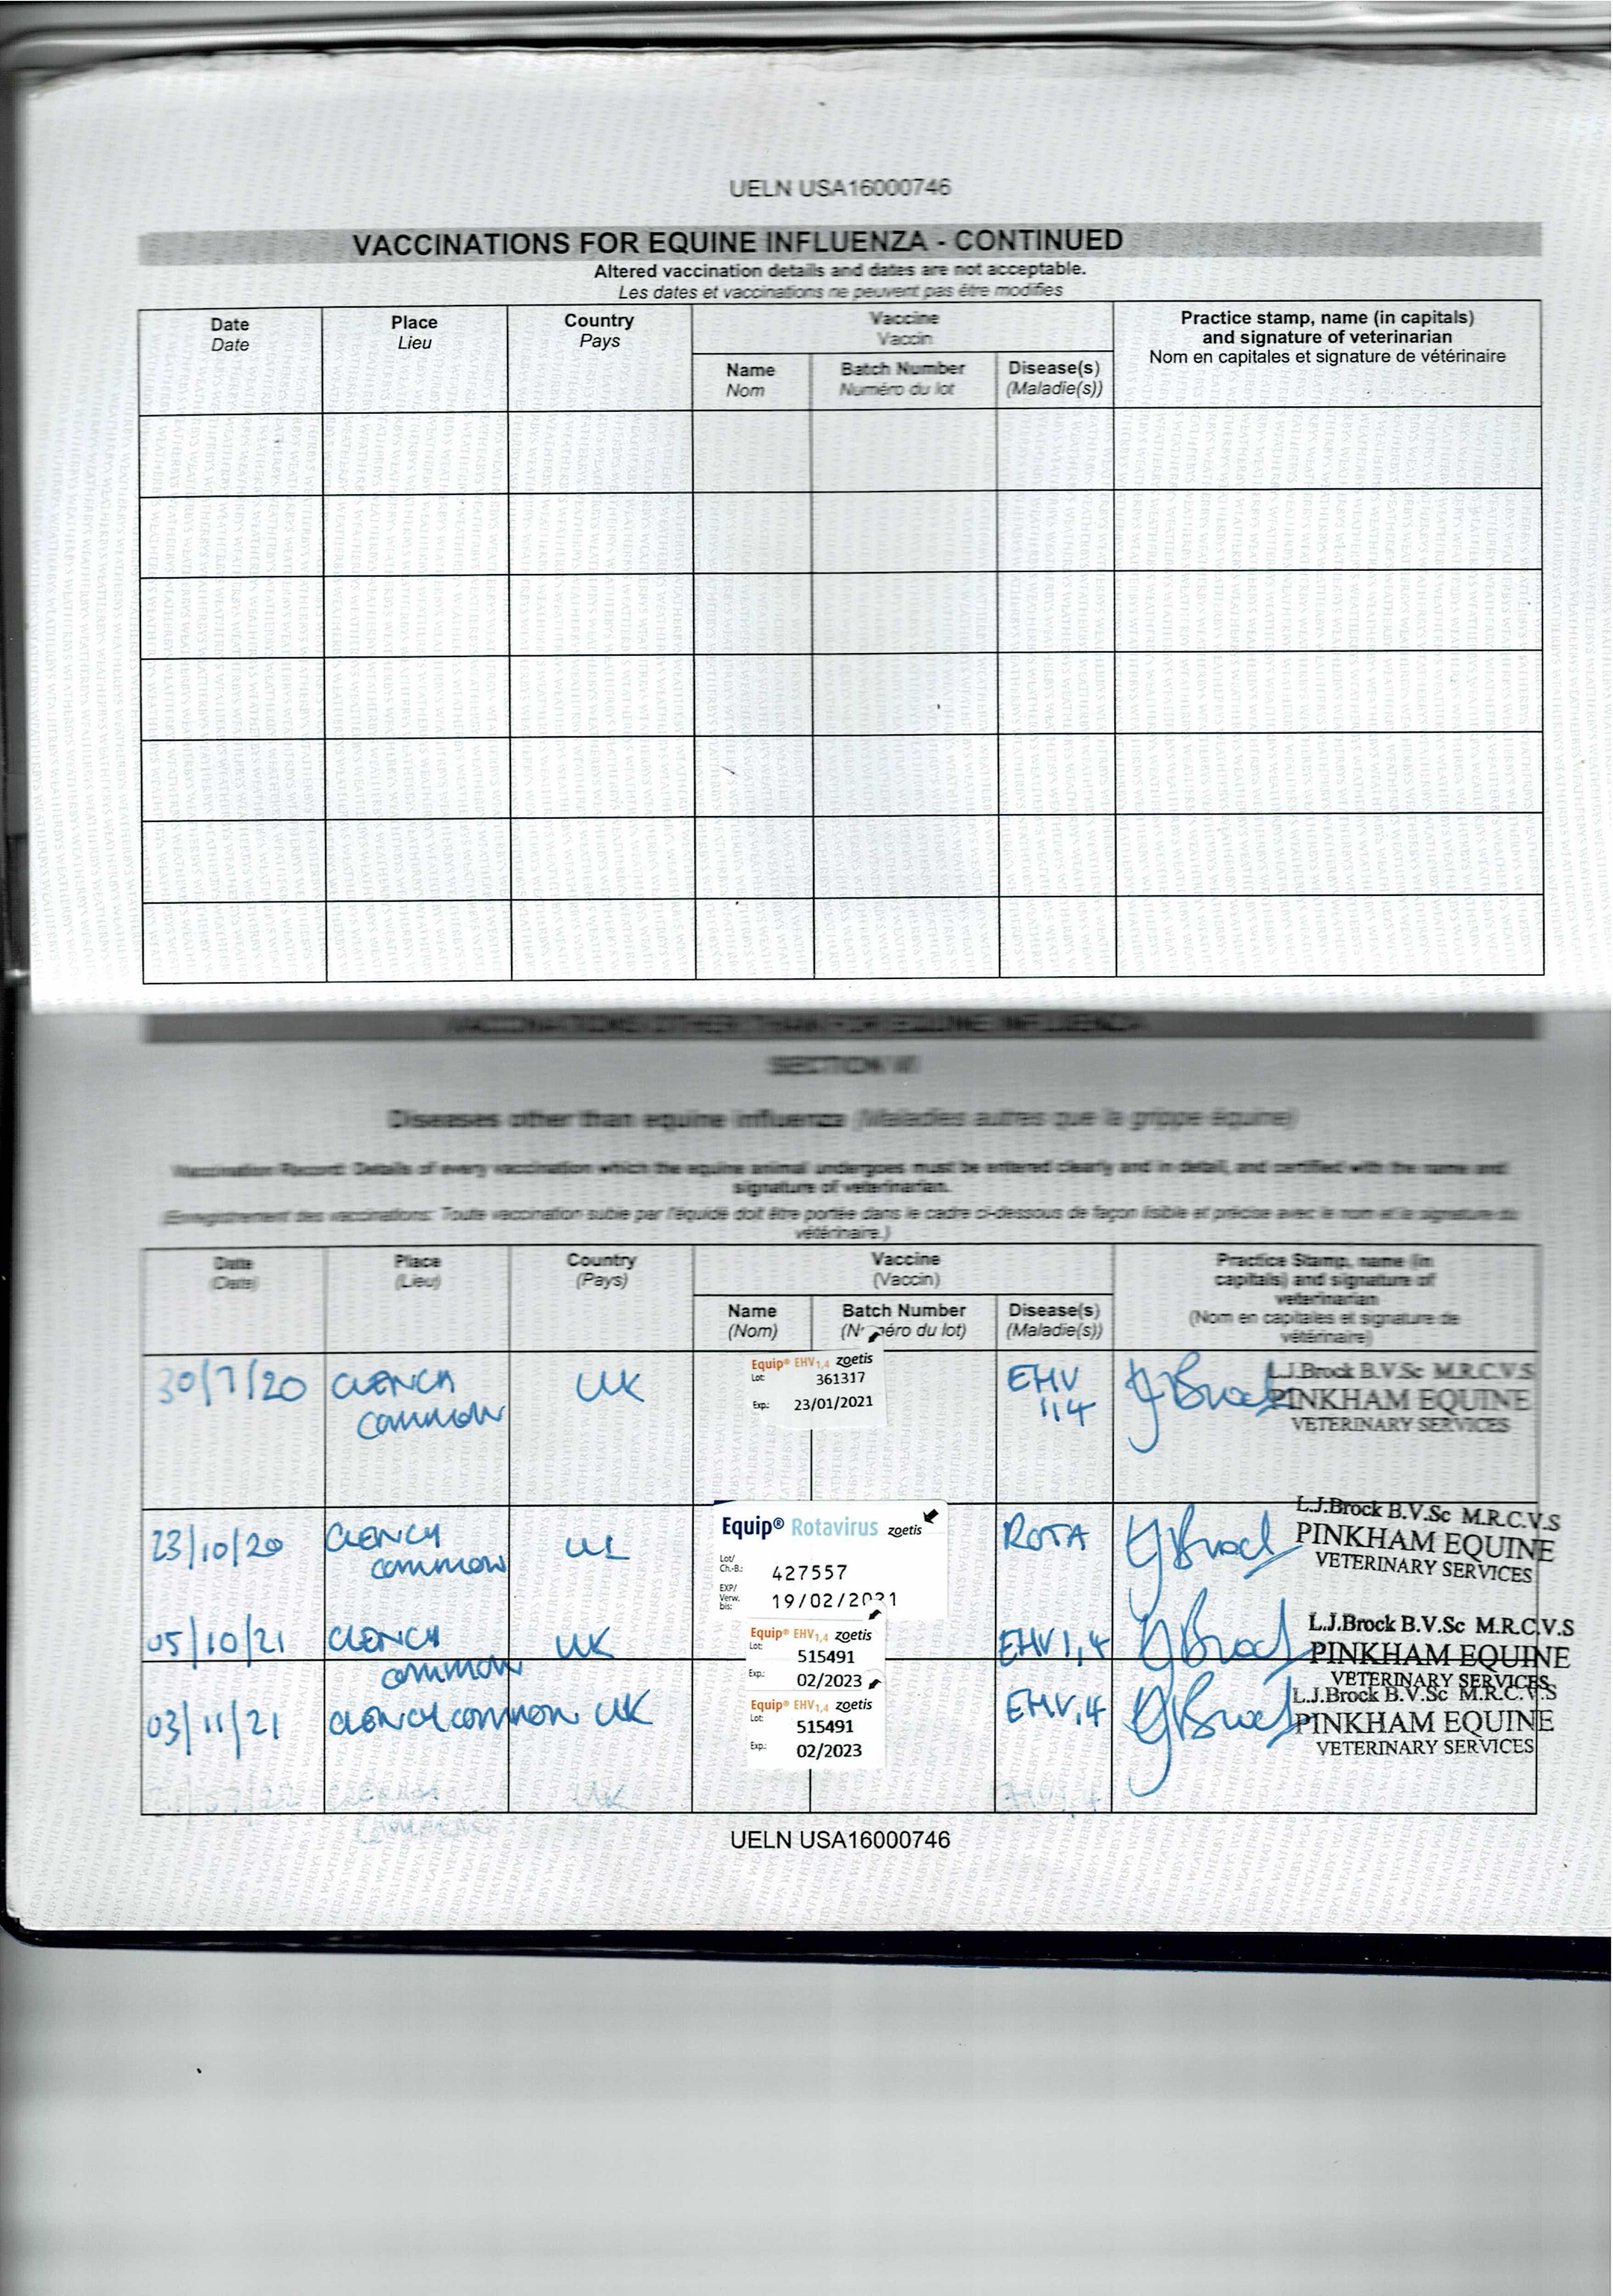 UELN USA16000746
VACCINATIONS FOR EQUINE INFLUENZA - CONTINUED
Altered vaccination details and dates are not acceptable.
Les dates et vaccinations ne peuvent pas être modifies
Date
Date
Place
Lieu
Country
Pays
Vaccine
Vaccin
Name
Nom
Batch Number
Numéro du lot
Disease(s)
(Maladie(s))
Practice stamp, name (in capitals)
and signature of veterinarian
Nom en capitales et signature de vétérinaire
VACCINATIONS OTHER THAN FOR EQUINE INFLUENZA
SECTION VI
Diseases other than equine influenza (Maladies autres que la grippe équine)
Vaccination Record: Details of every vaccination which the equine animal undergoes must be entered clearly and in detail, and certified with the name and
signature of veterinarian.
(Enregistrement des vaccinations: Toute vaccination subie par l'équidé doit être portée dans le cadre ci-dessous de façon lisible et précise avec le nom et la signature du
vétérinaire.)
Date
(Date)
Place
(Lieu)
Country
(Pays)
Vaccine
(Vaccin)
Name
(Nom)
Batch Number
(Numéro du lot)
Disease(s)
(Maladie(s))
Practice Stamp, name (in
capitals) and signature of
veterinarian
(Nom en capitales et signature de
vétérinaire)
30/7/20
CLENCH
COMMON
UK
Equip® EHV1,4 zoetis
Lot: 361317
Exp.: 23/01/2021
EHV
1,4
L.J.Brock B.V.Sc M.R.C.V.S
PINKHAM EQUINE
VETERINARY SERVICES
23/10/20
CLENCH
COMMON
UK
Equip® Rotavirus zoetis
Lot/
Ch.-B.: 427557
EXP/
Verw.
bis: 19/02/2021
ROTA
L.J.Brock B.V.Sc M.R.C.V.S
PINKHAM EQUINE
VETERINARY SERVICES
05/10/21
CLENCH
COMMON
UK
Equip® EHV1,4 zoetis
Lot: 515491
Exp.: 02/2023
EHV1,4
L.J.Brock B.V.Sc M.R.C.V.S
PINKHAM EQUINE
VETERINARY SERVICES
03/11/21
CLENCH COMMON
UK
Equip® EHV1,4 zoetis
Lot: 515491
Exp.: 02/2023
EHV1,4
L.J.Brock B.V.Sc M.R.C.V.S
PINKHAM EQUINE
VETERINARY SERVICES
UK
EHV1,4
UELN USA16000746